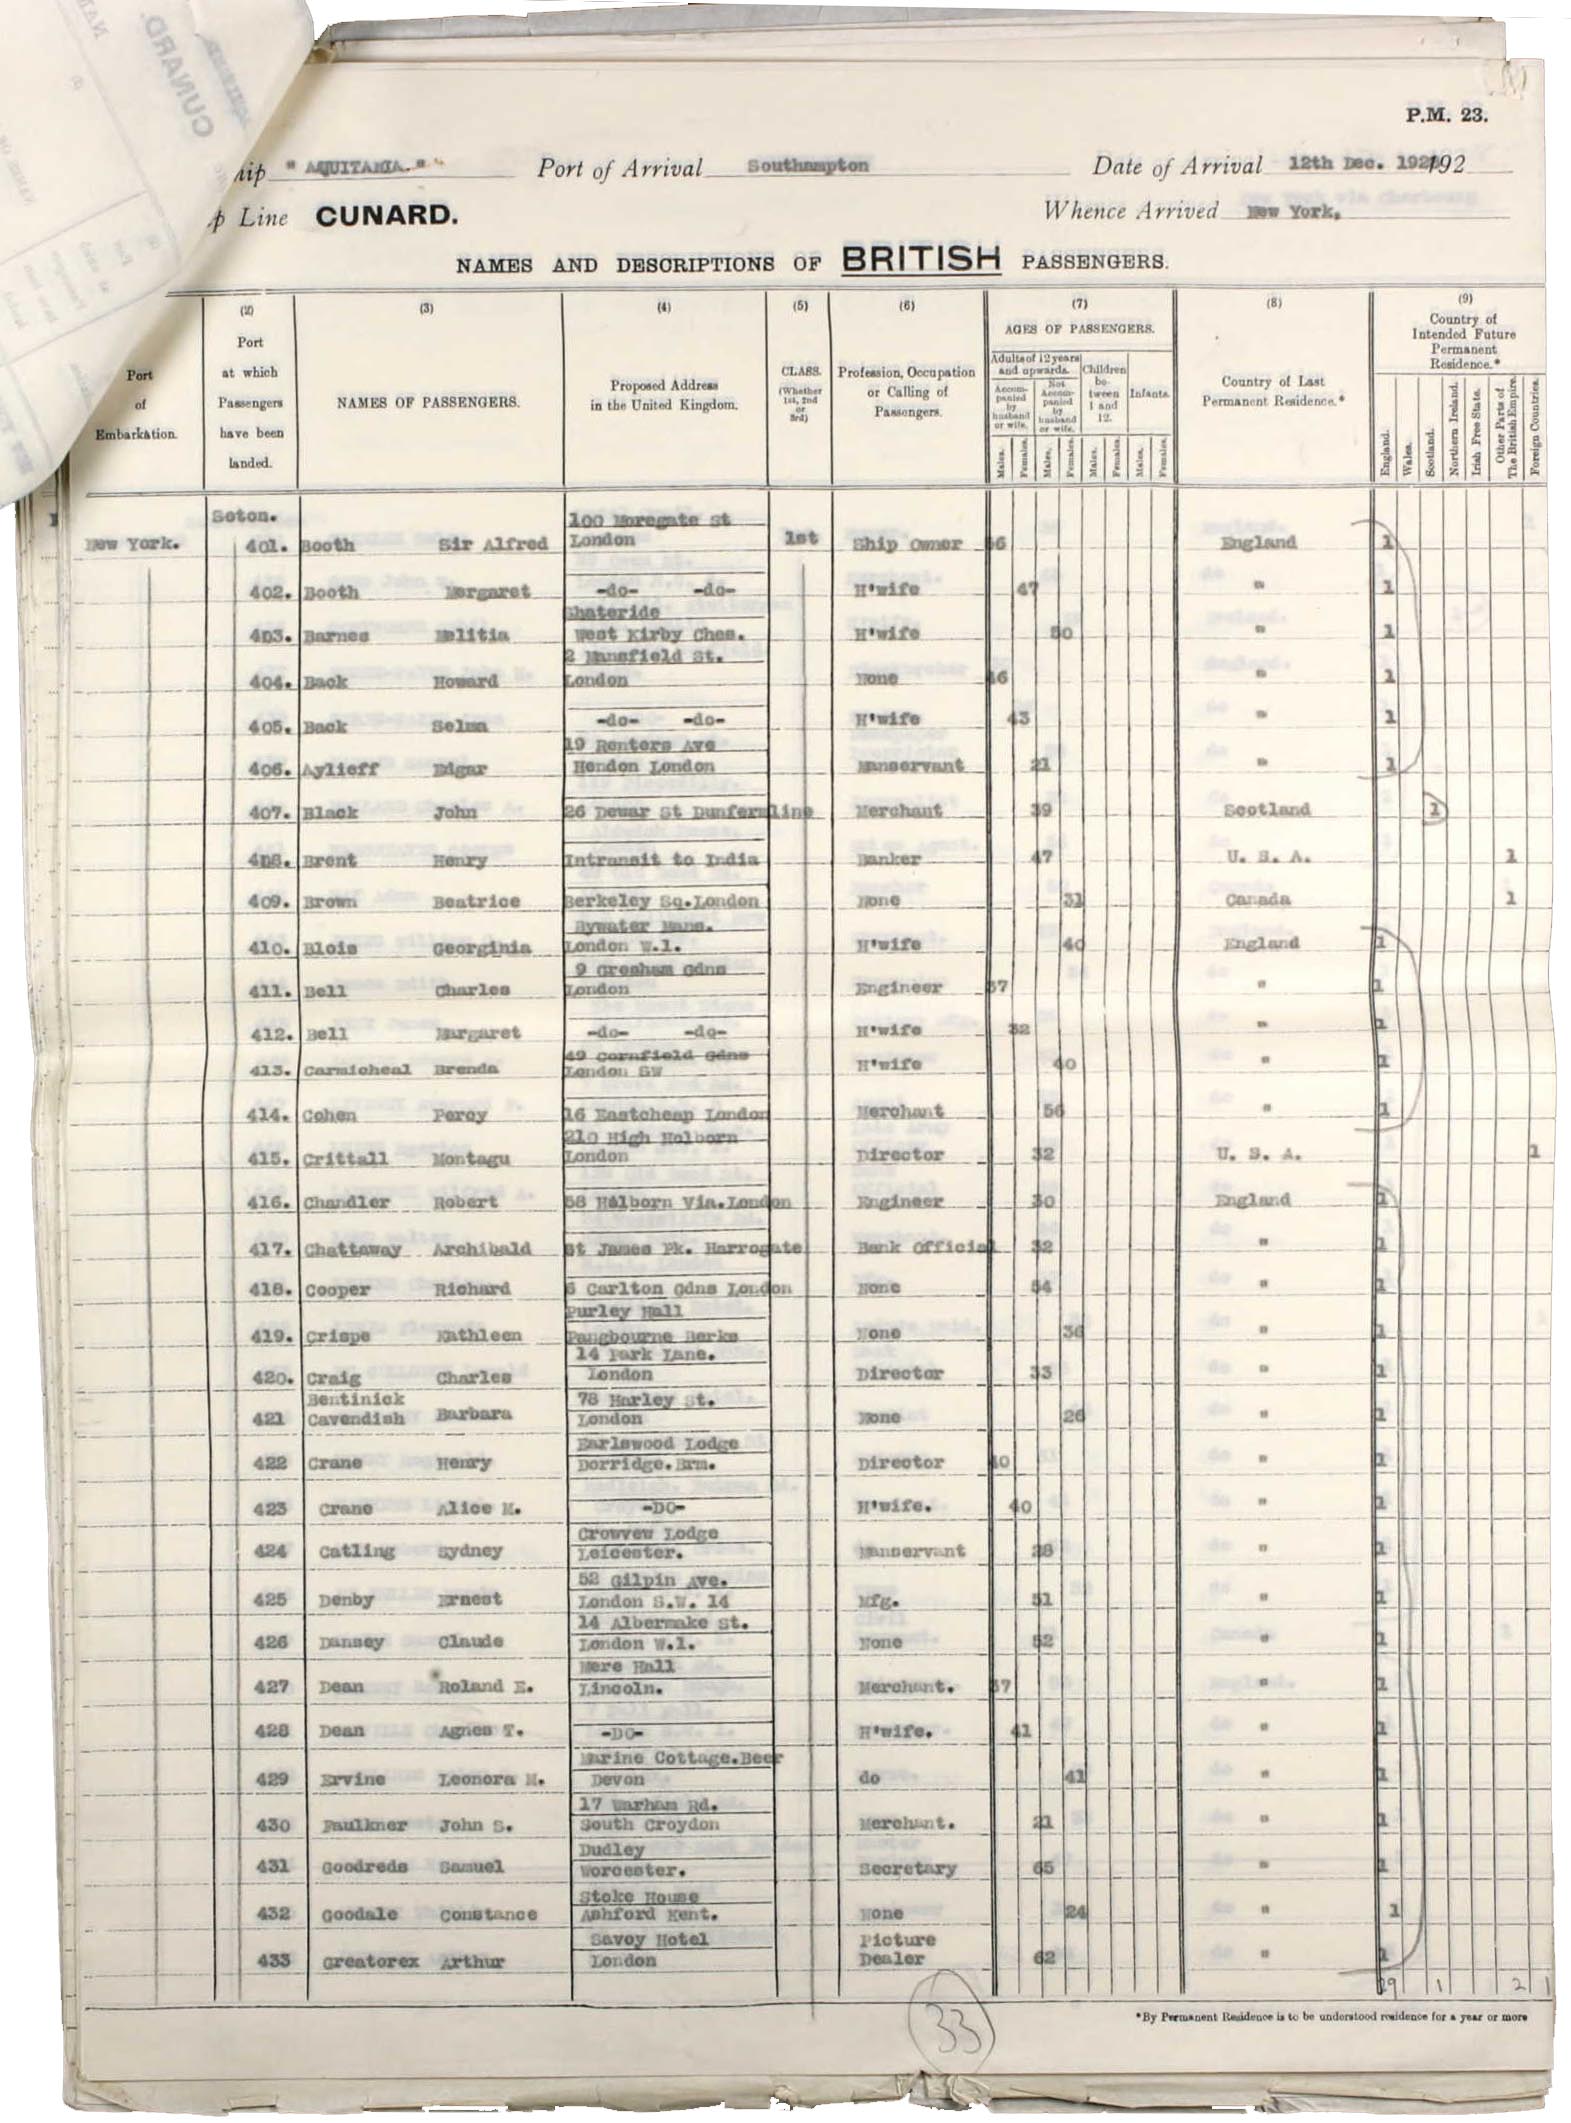 P.M. 23.
hip " AQUITANIA." Port of Arrival Southampton Date of Arrival 12th Dec. 1928 192
p Line CUNARD. Whence Arrived New York,
NAMES AND DESCRIPTIONS OF BRITISH PASSENGERS.
Port of Embarkation.
(2) Port at which Passengers have been landed.
(3) NAMES OF PASSENGERS.
(4) Proposed Address in the United Kingdom.
(5) CLASS. (Whether 1st, 2nd or 3rd)
(6) Profession, Occupation or Calling of Passengers.
(7) AGES OF PASSENGERS.
Adults of 12 years and upwards. Children between 1 and 12. Infants.
Accompanied by husband or wife. Not Accompanied by husband or wife.
Males. Females. Males. Females. Males. Females. Males. Females.
(8) Country of Last Permanent Residence.*
(9) Country of Intended Future Permanent Residence.*
England. Wales. Scotland. Northern Ireland. Irish Free State. Other Parts of The British Empire. Foreign Countries.
Soton. 100 Moregate St
New York. 401. Booth Sir Alfred London 1st Ship Owner 56 England 1
402. Booth Margaret -do- -do- H'wife 47 " 1
Shateride
403. Barnes Melitia West Kirby Ches. H'wife 50 " 1
2 Mansfield St.
404. Back Howard London None 46 " 1
405. Back Selma -do- -do- H'wife 43 " 1
19 Renters Ave
406. Aylieff Edgar Hendon London Manservant 21 " 1
407. Black John 26 Dewar St Dunfermline Merchant 39 Scotland 1
408. Brent Henry Intransit to India Banker 47 U. S. A. 1
409. Brown Beatrice Berkeley Sq.London None 31 Canada 1
Bywater Mans.
410. Blois Georginia London W.1. H'wife 40 England 1
9 Gresham Gdns
411. Bell Charles London Engineer 37 " 1
412. Bell Margaret -do- -do- H'wife 32 " 1
49 Cornfield Gdns
413. Carmicheal Brenda London SW H'wife 40 " 1
414. Cohen Percy 16 Eastcheap London Merchant 56 " 1
210 High Holborn
415. Crittall Montagu London Director 32 U. S. A. 1
416. Chandler Robert 58 Holborn Via.London Engineer 30 England 1
417. Chattaway Archibald St James Pk. Harrogate Bank Official 32 " 1
418. Cooper Richard 6 Carlton Gdns London None 54 " 1
Purley Hall
419. Crispe Kathleen Pangbourne Berks None 36 " 1
14 Park Lane.
420. Craig Charles London Director 33 " 1
Bentinick 78 Harley St.
421 Cavendish Barbara London None 26 " 1
Earlswood Lodge
422 Crane Henry Dorridge.Brm. Director 40 " 1
423 Crane Alice M. -DO- H'wife. 40 " 1
Crowvew Lodge
424 Catling Sydney Leicester. Manservant 28 " 1
52 Gilpin Ave.
425 Denby Ernest London S.W. 14 Mfg. 51 " 1
14 Albermake St.
426 Dansey Claude London W.1. None 52 " 1
Mere Hall
427 Dean Roland E. Lincoln. Merchant. 37 " 1
428 Dean Agnes T. -DO- H'wife. 41 " 1
Marine Cottage.Beer
429 Ervine Leonora M. Devon do 41 " 1
17 Warham Rd.
430 Faulkner John S. South Croydon Merchant. 21 " 1
Dudley
431 Goodreds Samuel Worcester. Secretary 65 " 1
Stoke House
432 Goodale Constance Ashford Kent. None 24 " 1
Savoy Hotel Picture
433 Greatorex Arthur London Dealer 62 " 1
29 1 2 1
33
*By Permanent Residence is to be understood residence for a year or more